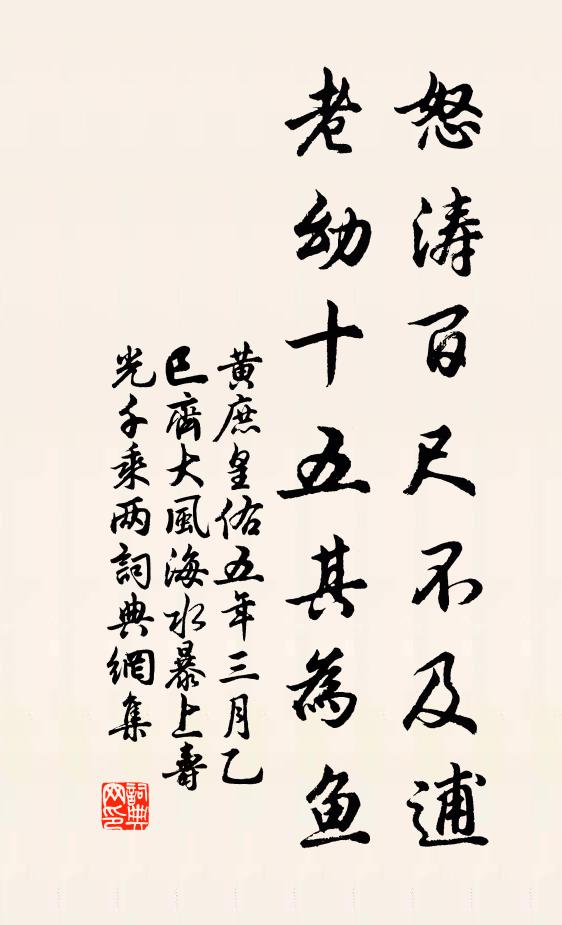 怒涛百尺不及逋
老幼十五其為鱼
黄庶皇佑五年三月乙
巳齊大風海水暴上壽
光千乘两詞典網集
詞典网印